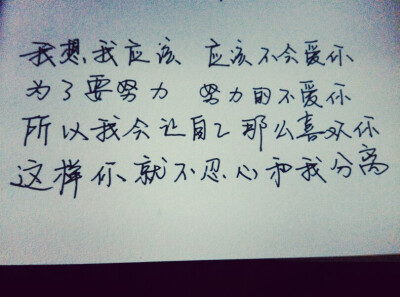 我想我应该 应该不会爱你
为了要努力 努力的不爱你
所以我会让自己那么喜欢你
这样你就不忍心和我分离